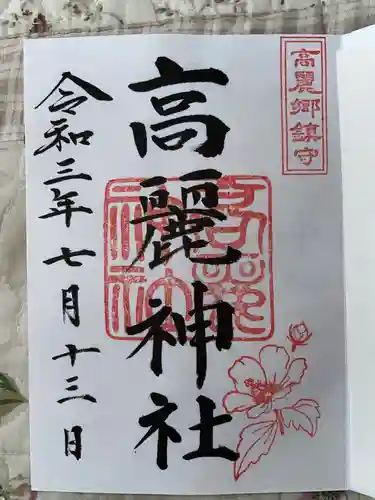 高麗郷鎮守
高麗神社
令和三年七月十三日
高麗神社